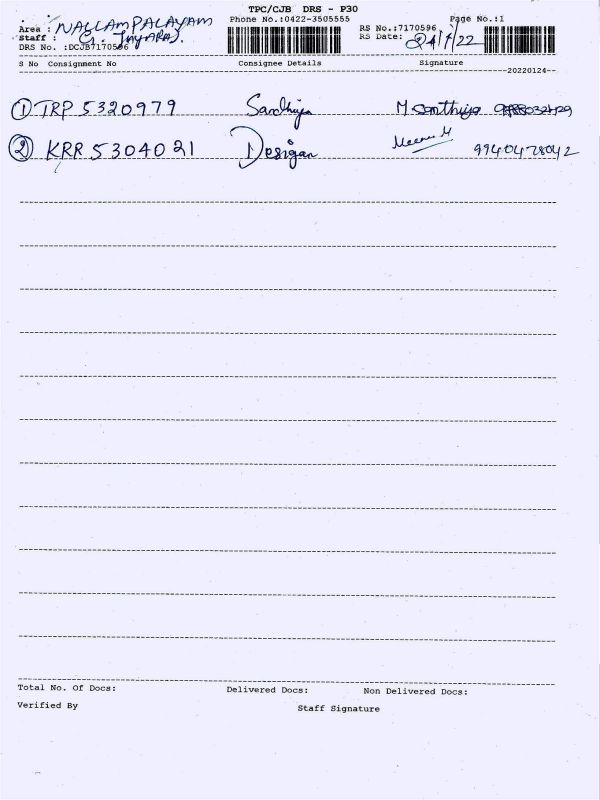 TPC/CJB DRS - P30
Area : NALLAMPALAYAM Phone No.:0422-3505555 RS No.:7170596 Page No.:1
Staff : G. JAYARAJ. RS Date: 24/1/22
DRS No. :DCJB7170596
S No Consignment No Consignee Details Signature
20220124
① TRP 5320979 Sandhiya M Santhiya
② KRR 5304021 Desigan Meenu M 9940478042
Total No. Of Docs: Delivered Docs: Non Delivered Docs:
Verified By Staff Signature